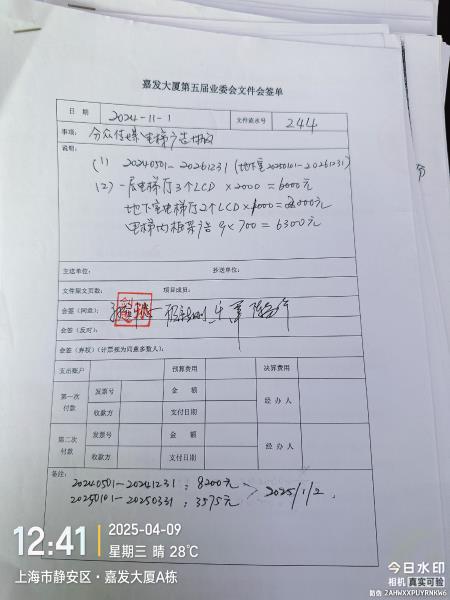 嘉发大厦第五届业委会文件会签单
日 期 2024-11-1 文件流水号 244
事项: 分众传媒电梯广告协议
说明:
(1) 20240501-20261231 (地下室20250101-20261231)
(2) 一层电梯厅3个LCD ×2000=6000元
地下室电梯厅2个LCD×1000=2000元
电梯内框架广告 9×700=6300元
主送单位: 抄送单位:
文件原文页数: 项目成员:
会签(同意):
会签(反对):
会签(弃权)(计票视为同意多数人):
支出账户 预算费用 决算费用
第一次付款 发票号 金 额 经 办 人
收款方 支付日期
第二次付款 发票号 金 额 经 办 人
收款方 支付日期
备注:
20240501-20241231: 8200元
20250101-20250331: 3575元 > 2025/1/2.
12:41 2025-04-09
星期三 晴 28℃
上海市静安区·嘉发大厦A栋
今日水印
相机 真实可验
防伪 2AHWXXPUYRNKW6